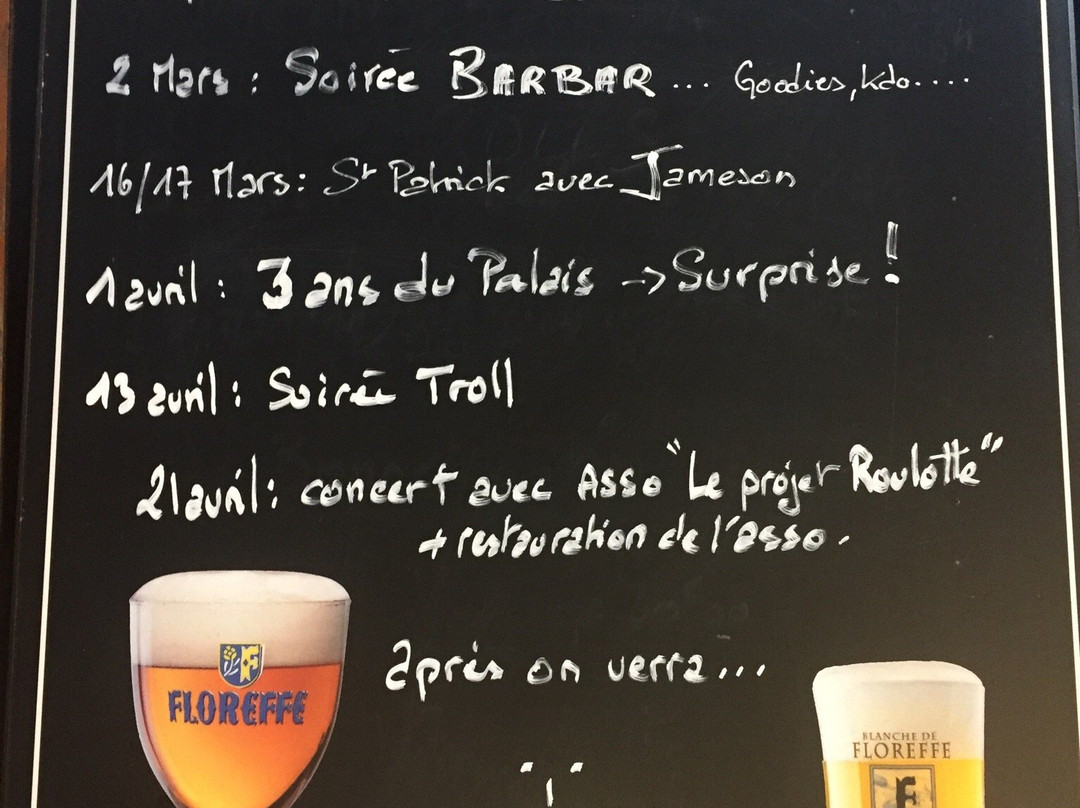 2 Mars : Soirée BARBAR ... Goodies, kdo....
16/17 Mars : St Patrick avec Jameson
1 avril : 3 ans du Palais -> Surprise !
13 avril : Soirée Troll
21 avril : concert avec Asso "Le projet Roulotte"
+ restauration de l'asso.
après on verra...
F
FLOREFFE
BLANCHE DE
FLOREFFE
F